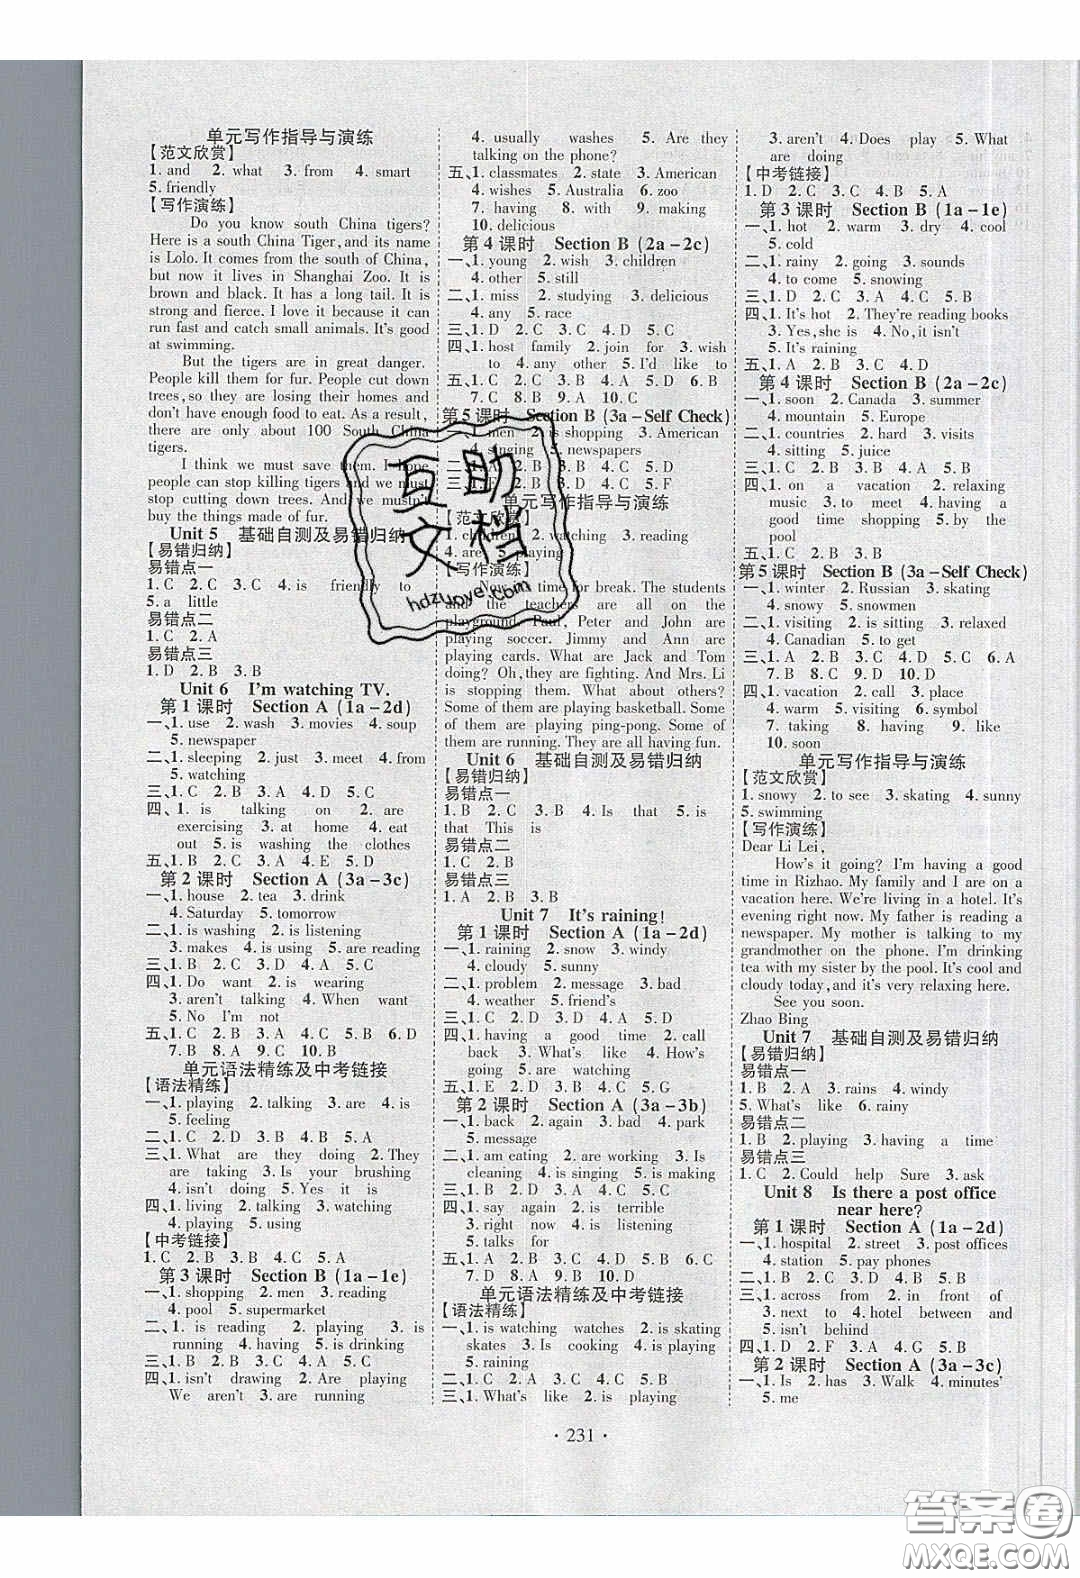 单元写作指导与演练
【范文欣赏】
1. and 2. what 3. from 4. smart
5. friendly
【写作演练】
Do you know south China tigers?
Here is a south China Tiger, and its name
is Lolo. It comes from the south of China,
but now it lives in Shanghai Zoo. It is
brown and black. It has a long tail. It is
strong and fierce. I love it because it can
run fast and catch small animals. It's good
at swimming.
But the tigers are in great danger.
People kill them for fur. People cut down
trees, so they are losing their homes and
don't have enough food to eat. As a result,
there are only about 100 South China
tigers.
I think we must save them. I hope
people can stop killing tigers and we must
stop cutting down trees. And we mustn't
buy the things made of fur.
Unit 5 基础自测及易错归纳
【易错归纳】
易错点一
1. C 2. C 3. C 4. is friendly to
5. a little
易错点二
1. C 2. A
易错点三
1. D 2. B 3. B
Unit 6 I'm watching TV.
第 1 课时 Section A (1a-2d)
一、1. use 2. wash 3. movies 4. soup
5. newspaper
二、1. sleeping 2. just 3. meet 4. from
5. watching
三、1. C 2. B 3. D 4. D 5. C
四、1. is talking on 2. are
exercising 3. at home 4. eat
out 5. is washing the clothes
五、1. B 2. C 3. A 4. E 5. D
第 2 课时 Section A (3a-3c)
一、1. house 2. tea 3. drink
4. Saturday 5. tomorrow
二、1. is washing 2. is listening
3. makes 4. is using 5. are reading
三、1. C 2. A 3. B 4. D 5. B
四、1. Do want 2. is wearing
3. aren't taking 4. When want
5. No I'm not
五、1. D 2. C 3. C 4. B 5. A 6. D
7. B 8. A 9. C 10. B
单元语法精练及中考链接
【语法精练】
一、1. playing 2. talking 3. are 4. is
5. feeling
二、1. C 2. D 3. B 4. C 5. C
三、1. What are they doing 2. They
are taking 3. Is your brushing
4. isn't doing 5. Yes it is
四、1. living 2. talking 3. watching
4. playing 5. using
【中考链接】
1. C 2. B 3. B 4. C 5. A
第 3 课时 Section B (1a-1e)
一、1. shopping 2. men 3. reading
4. pool 5. supermarket
二、1. is reading 2. playing 3. is
running 4. having 5. is drinking
三、1. B 2. C 3. A 4. C 5. D
四、1. isn't drawing 2. Are playing
We aren't 3. are running
4. usually washes 5. Are they
talking on the phone?
五、1. classmates 2. state 3. American
4. wishes 5. Australia 6. zoo
7. having 8. with 9. making
10. delicious
第 4 课时 Section B (2a-2c)
一、1. young 2. wish 3. children
4. other 5. still
二、1. miss 2. studying 3. delicious
4. any 5. race
三、1. D 2. C 3. C 4. D 5. C
四、1. host family 2. join for 3. wish
to 4. any other 5. I'd like to
五、1. C 2. C 3. B 4. A 5. D 6. B
7. C 8. B 9. A 10. C
第 5 课时 Section B (3a-Self Check)
一、1. men 2. is shopping 3. American
4. singing 5. newspapers
二、1. A 2. B 3. B 4. C 5. C
三、1. F 2. B 3. D 4. A 5. C
单元写作指导与演练
【范文欣赏】
1. children 2. watching 3. reading
4. are 5. playing
【写作演练】
Now it's time for break. The students
and the teachers are all on the
playground. Paul, Peter and John are
playing soccer. Jimmy and Ann are
playing cards. What are Jack and Tom
doing? Oh, they are fighting. And Mrs. Li
is stopping them. What about others?
Some of them are playing basketball. Some
of them are playing ping-pong. Some of
them are running. They are all having fun.
Unit 6 基础自测及易错归纳
【易错归纳】
易错点一
1. B 2. C 3. C 4. Is that 5. is
that This is
易错点二
1. C 2. B
易错点三
1. A 2. B 3. B
Unit 7 It's raining!
第 1 课时 Section A (1a-2d)
一、1. raining 2. snow 3. windy
4. cloudy 5. sunny
二、1. problem 2. message 3. bad
4. weather 5. friend's
三、1. C 2. B 3. D 4. B 5. A
四、1. having a good time 2. call
back 3. How's going 4. How's
going 5. are watching
五、1. E 2. D 3. B 4. C 5. G
第 2 课时 Section A (3a-3b)
一、1. back 2. again 3. bad 4. park
5. message
二、1. am eating 2. are working 3. Is
cleaning 4. is singing 5. is making
三、1. B 2. D 3. A 4. D 5. C
四、1. say again 2. is terrible
3. right now 4. is listening
5. talks for
五、1. A 2. C 3. B 4. A 5. B 6. C
7. D 8. D 9. B 10. D
单元语法精练及中考链接
【语法精练】
一、1. is watching watches 2. is skating
skates 3. Is cooking 4. is playing
5. raining
二、1. C 2. B 3. C 4. D 5. C
三、1. What's like 2. is playing
3. aren't 4. Does play 5. What
are doing
【中考链接】
1. D 2. C 3. C 4. B 5. A
第 3 课时 Section B (1a-1e)
一、1. hot 2. warm 3. dry 4. cool
5. cold
二、1. rainy 2. going 3. sounds
4. to come 5. snowing
三、1. D 2. C 3. A 4. C 5. B
四、1. It's hot 2. They're reading books
3. Yes, she is 4. No, it isn't
5. It's raining
五、1. A 2. B 3. B 4. C 5. D
第 4 课时 Section B (2a-2c)
一、1. soon 2. Canada 3. summer
4. mountain 5. Europe
二、1. countries 2. hard 3. visits
4. sitting 5. juice
三、1. B 2. C 3. B 4. A 5. B
四、1. on a vacation 2. relaxing
music 3. to meet 4. having a
good time shopping 5. by the
pool
五、1. B 2. C 3. C 4. B 5. D
第 5 课时 Section B (3a-Self Check)
一、1. winter 2. Russian 3. skating
4. snowy 5. snowmen
二、1. visiting 2. is sitting 3. relaxed
4. Canadian 5. to get
三、1. A 2. B 3. C 4. D 5. C 6. A
7. B 8. B 9. C 10. D
四、1. vacation 2. call 3. place
4. warm 5. visiting 6. symbol
7. taking 8. having 9. like
10. soon
单元写作指导与演练
【范文欣赏】
1. snowy 2. to see 3. skating 4. sunny
5. swimming
【写作演练】
Dear Li Lei,
How's it going? I'm having a good
time in Rizhao. My family and I are on a
vacation here. We're living in a hotel. It's
evening right now. My father is reading a
newspaper. My mother is talking to my
grandmother on the phone. I'm drinking
tea with my sister by the pool. It's cool and
cloudy today, and it's very relaxing here.
See you soon.
Zhao Bing
Unit 7 基础自测及易错归纳
【易错归纳】
易错点一
1. B 2. A 3. rains 4. windy
5. What's like 6. rainy
易错点二
1. B 2. playing 3. having a time
易错点三
1. C 2. Could help Sure 3. ask
Unit 8 Is there a post office
near here?
第 1 课时 Section A (1a-2d)
一、1. hospital 2. street 3. post offices
4. station 5. pay phones
二、1. D 2. C 3. C 4. B 5. B
三、1. across from 2. in front of
3. next to 4. hotel between and
5. isn't behind
四、1. D 2. F 3. A 4. G 5. B
第 2 课时 Section A (3a-3c)
一、1. Is 2. has 3. Walk 4. minutes'
5. me
· 231 ·
互助
文档
hdzuoye.com
答案圈
MXQE.COM